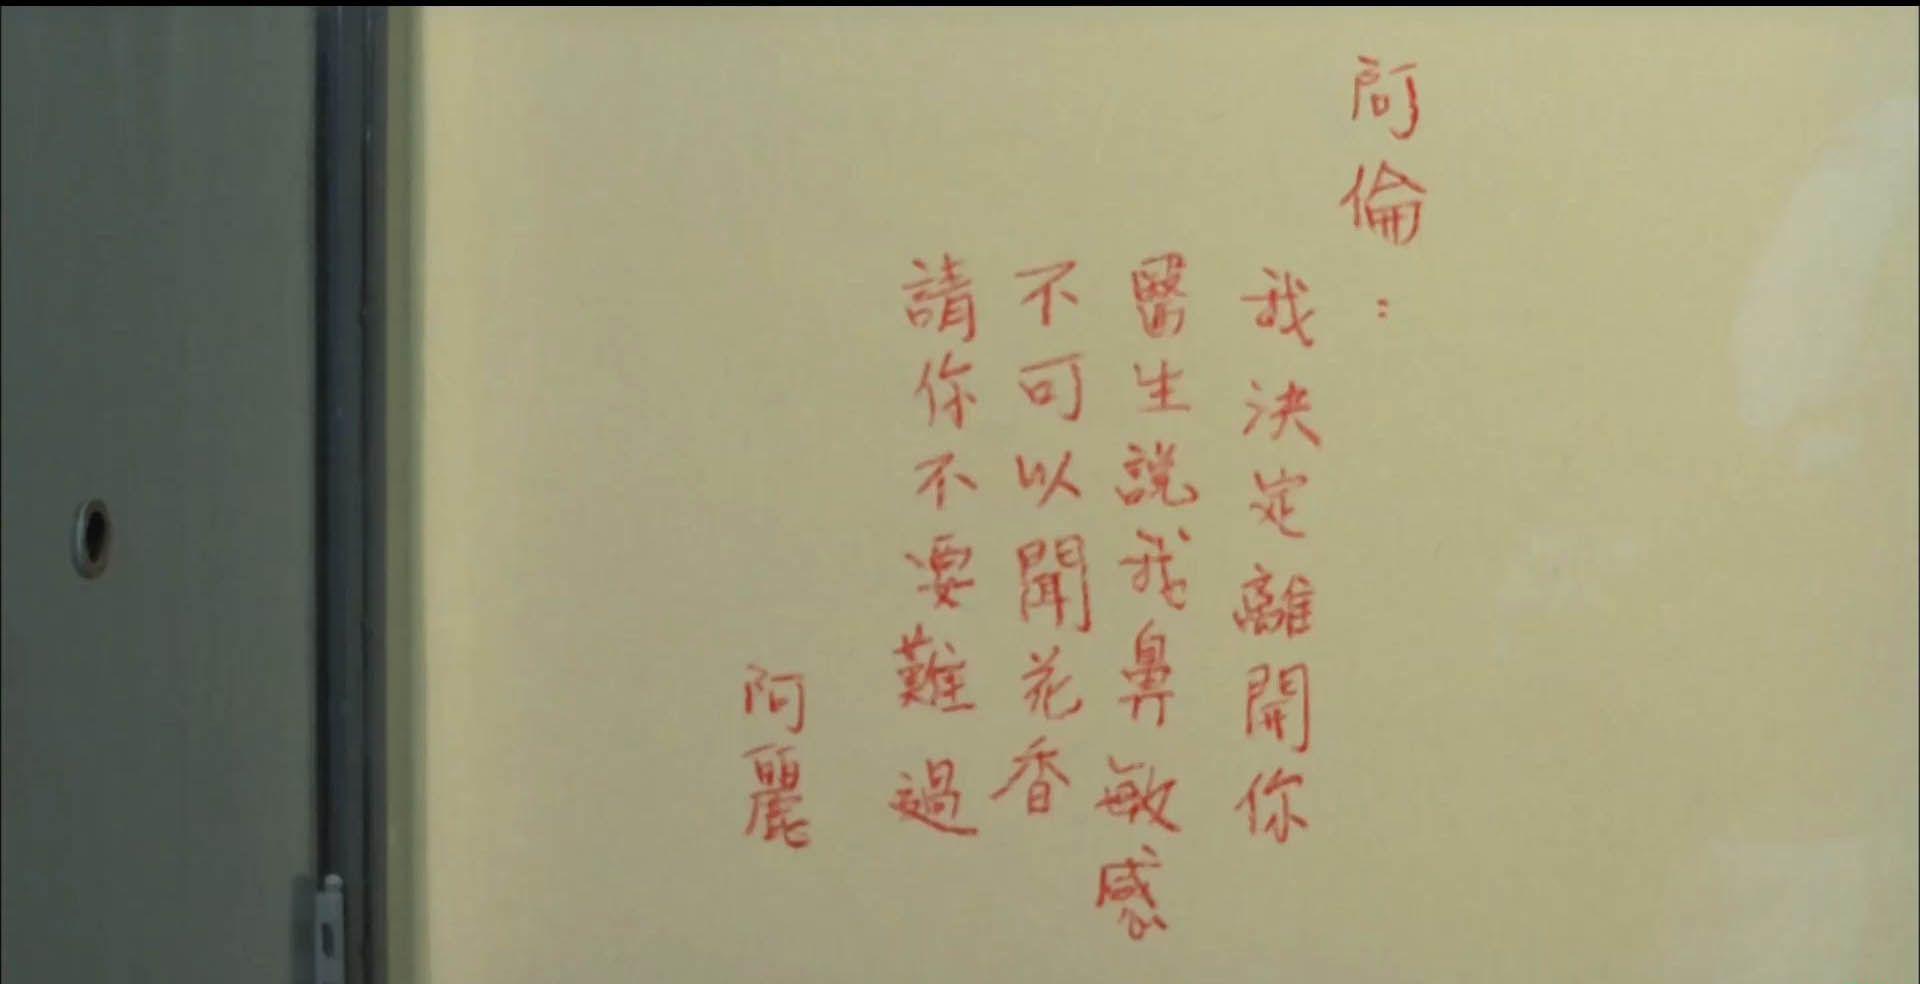 阿倫：
我決定離開你
醫生說我鼻敏感
不可以聞花香
請你不要難過
阿麗